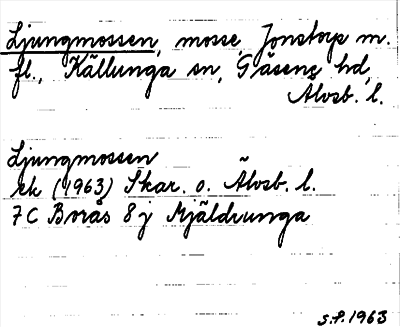 Ljungmossen, mosse, Jonstorp m.
fl., Källunga sn, Gäsene hd,
Älvsb. l.
Ljungmossen
ek (1963) Skar. o. Älvsb. l.
7C Borås 8j Mjäldrunga
S.P. 1963